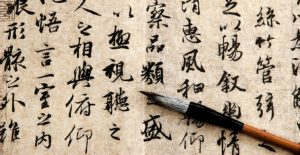 絲竹管弦之
足以暢敘幽情
清惠風和暢仰
察品類之盛
以極視聽之
人之相與俯仰
悟言一室之內
形骸之外雖